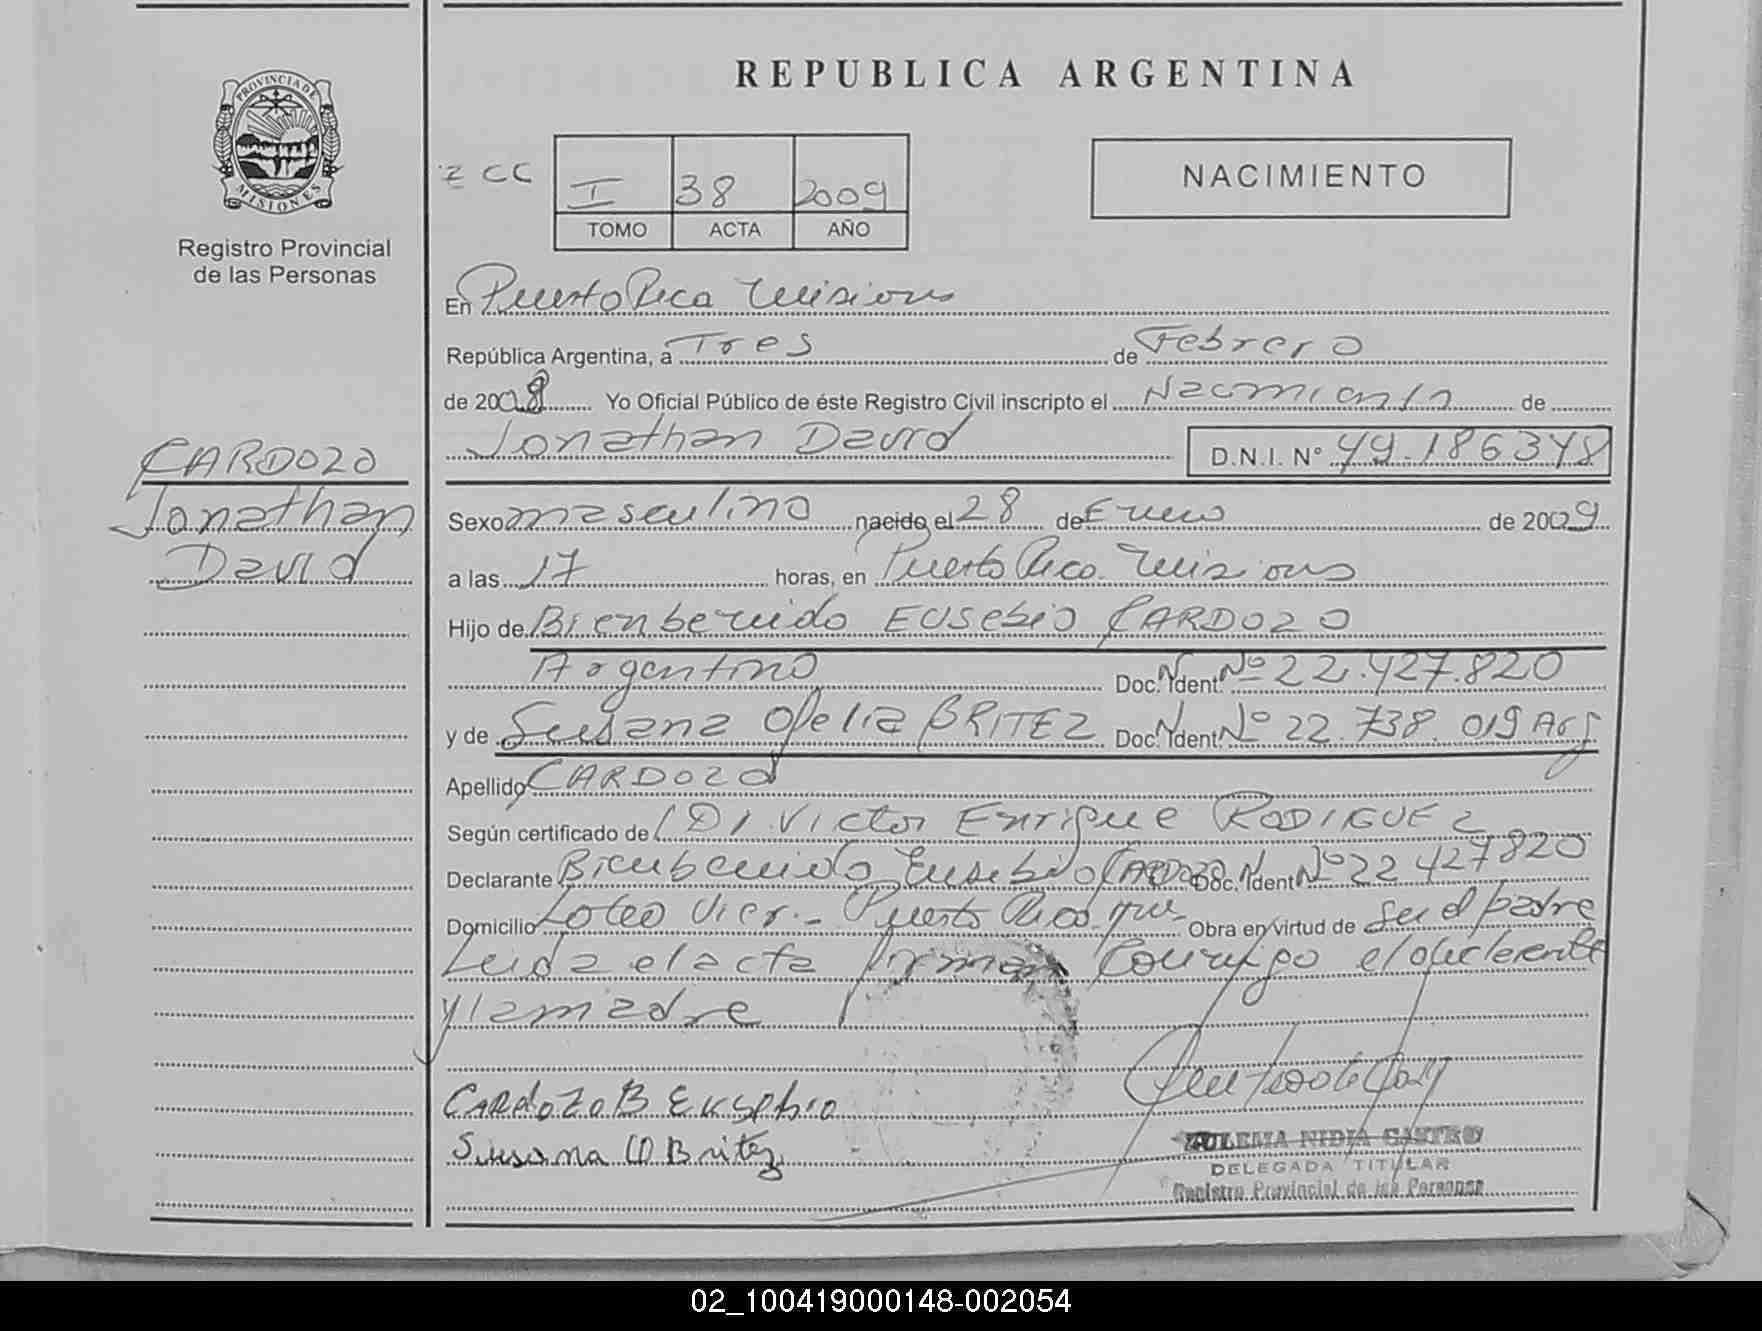 REPUBLICA ARGENTINA
PROVINCIA DE
MISIONES
Registro Provincial
de las Personas
CC I 38 2009
TOMO ACTA AÑO
NACIMIENTO
En Puerto Rico Misiones
República Argentina, a Tres de Febrero
de 2009 Yo Oficial Público de éste Registro Civil inscripto el Nacimiento de
Jonathan David D.N.I. N° 49.186348
CARDOZO
Jonathan
David
Sexo masculino nacido el 28 de Enero de 2009
a las 17 horas, en Puerto Rico Misiones
Hijo de Bienbenido EUSEbio CARDOZO
Argentino Doc. Ident. N° 22.427.820
y de Susana Ofelia BRITEZ Doc. Ident. N° 22.738.019 Arg
Apellido CARDOZO
Según certificado de Victor Enrique RODIGUEZ
Declarante Bienbenido Eusebio CARDOZO Doc. Ident N° 22427820
Domicilio Loteo Puerto Rico Obra en virtud de Ser el padre
Leida el acta firman Conmigo el
y la madre
CARdOZO B EUSEbio
Susana O Britez
ZULEMA NIDIA CASTRO
DELEGADA TITULAR
Registro Provincial de las Personas
02_100419000148-002054